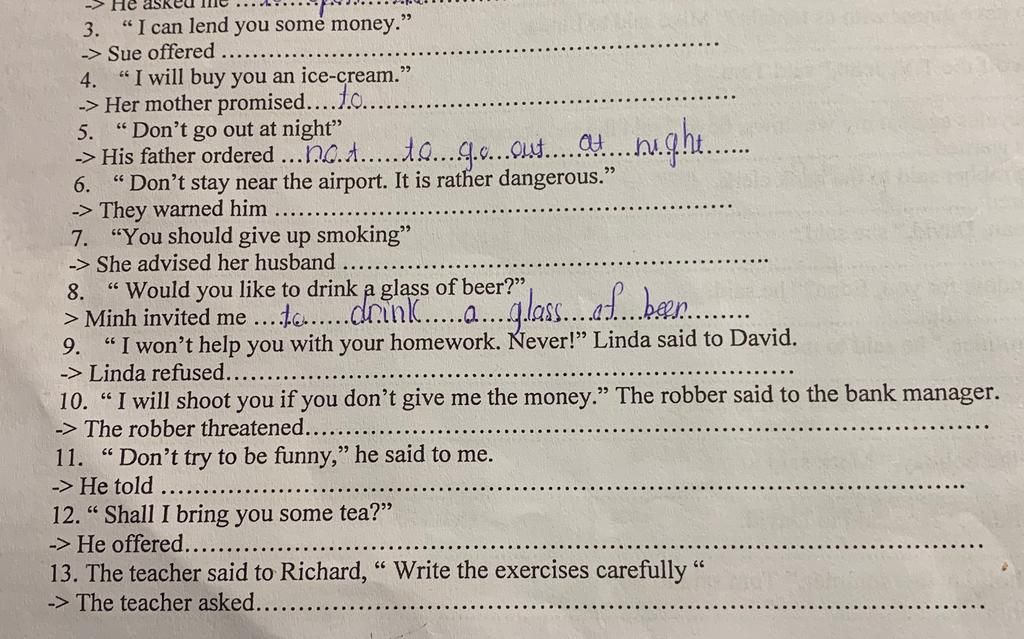 -> He asked me ...
3. “ I can lend you some money.”
-> Sue offered ....................
4. “ I will buy you an ice-cream.”
-> Her mother promised....to....................
5. “ Don’t go out at night”
-> His father ordered ...not......to...go...out....at...night......
6. “ Don’t stay near the airport. It is rather dangerous.”
-> They warned him ....................
7. “You should give up smoking”
-> She advised her husband ....................
8. “ Would you like to drink a glass of beer?”
> Minh invited me ...to......drink.....a...glass...of...beer........
9. “ I won’t help you with your homework. Never!” Linda said to David.
-> Linda refused....................
10. “ I will shoot you if you don’t give me the money.” The robber said to the bank manager.
-> The robber threatened....................
11. “ Don’t try to be funny,” he said to me.
-> He told ....................
12. “ Shall I bring you some tea?”
-> He offered....................
13. The teacher said to Richard, “ Write the exercises carefully “
-> The teacher asked....................